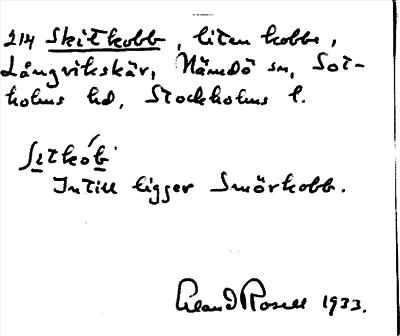 214 Skitkobb, liten kobbe,
Långvikskär, Nämdö sn, Sot-
holms hd, Stockholms l.
ʃɩtkób
Intill ligger Smörkobb.
Rosell 1933.